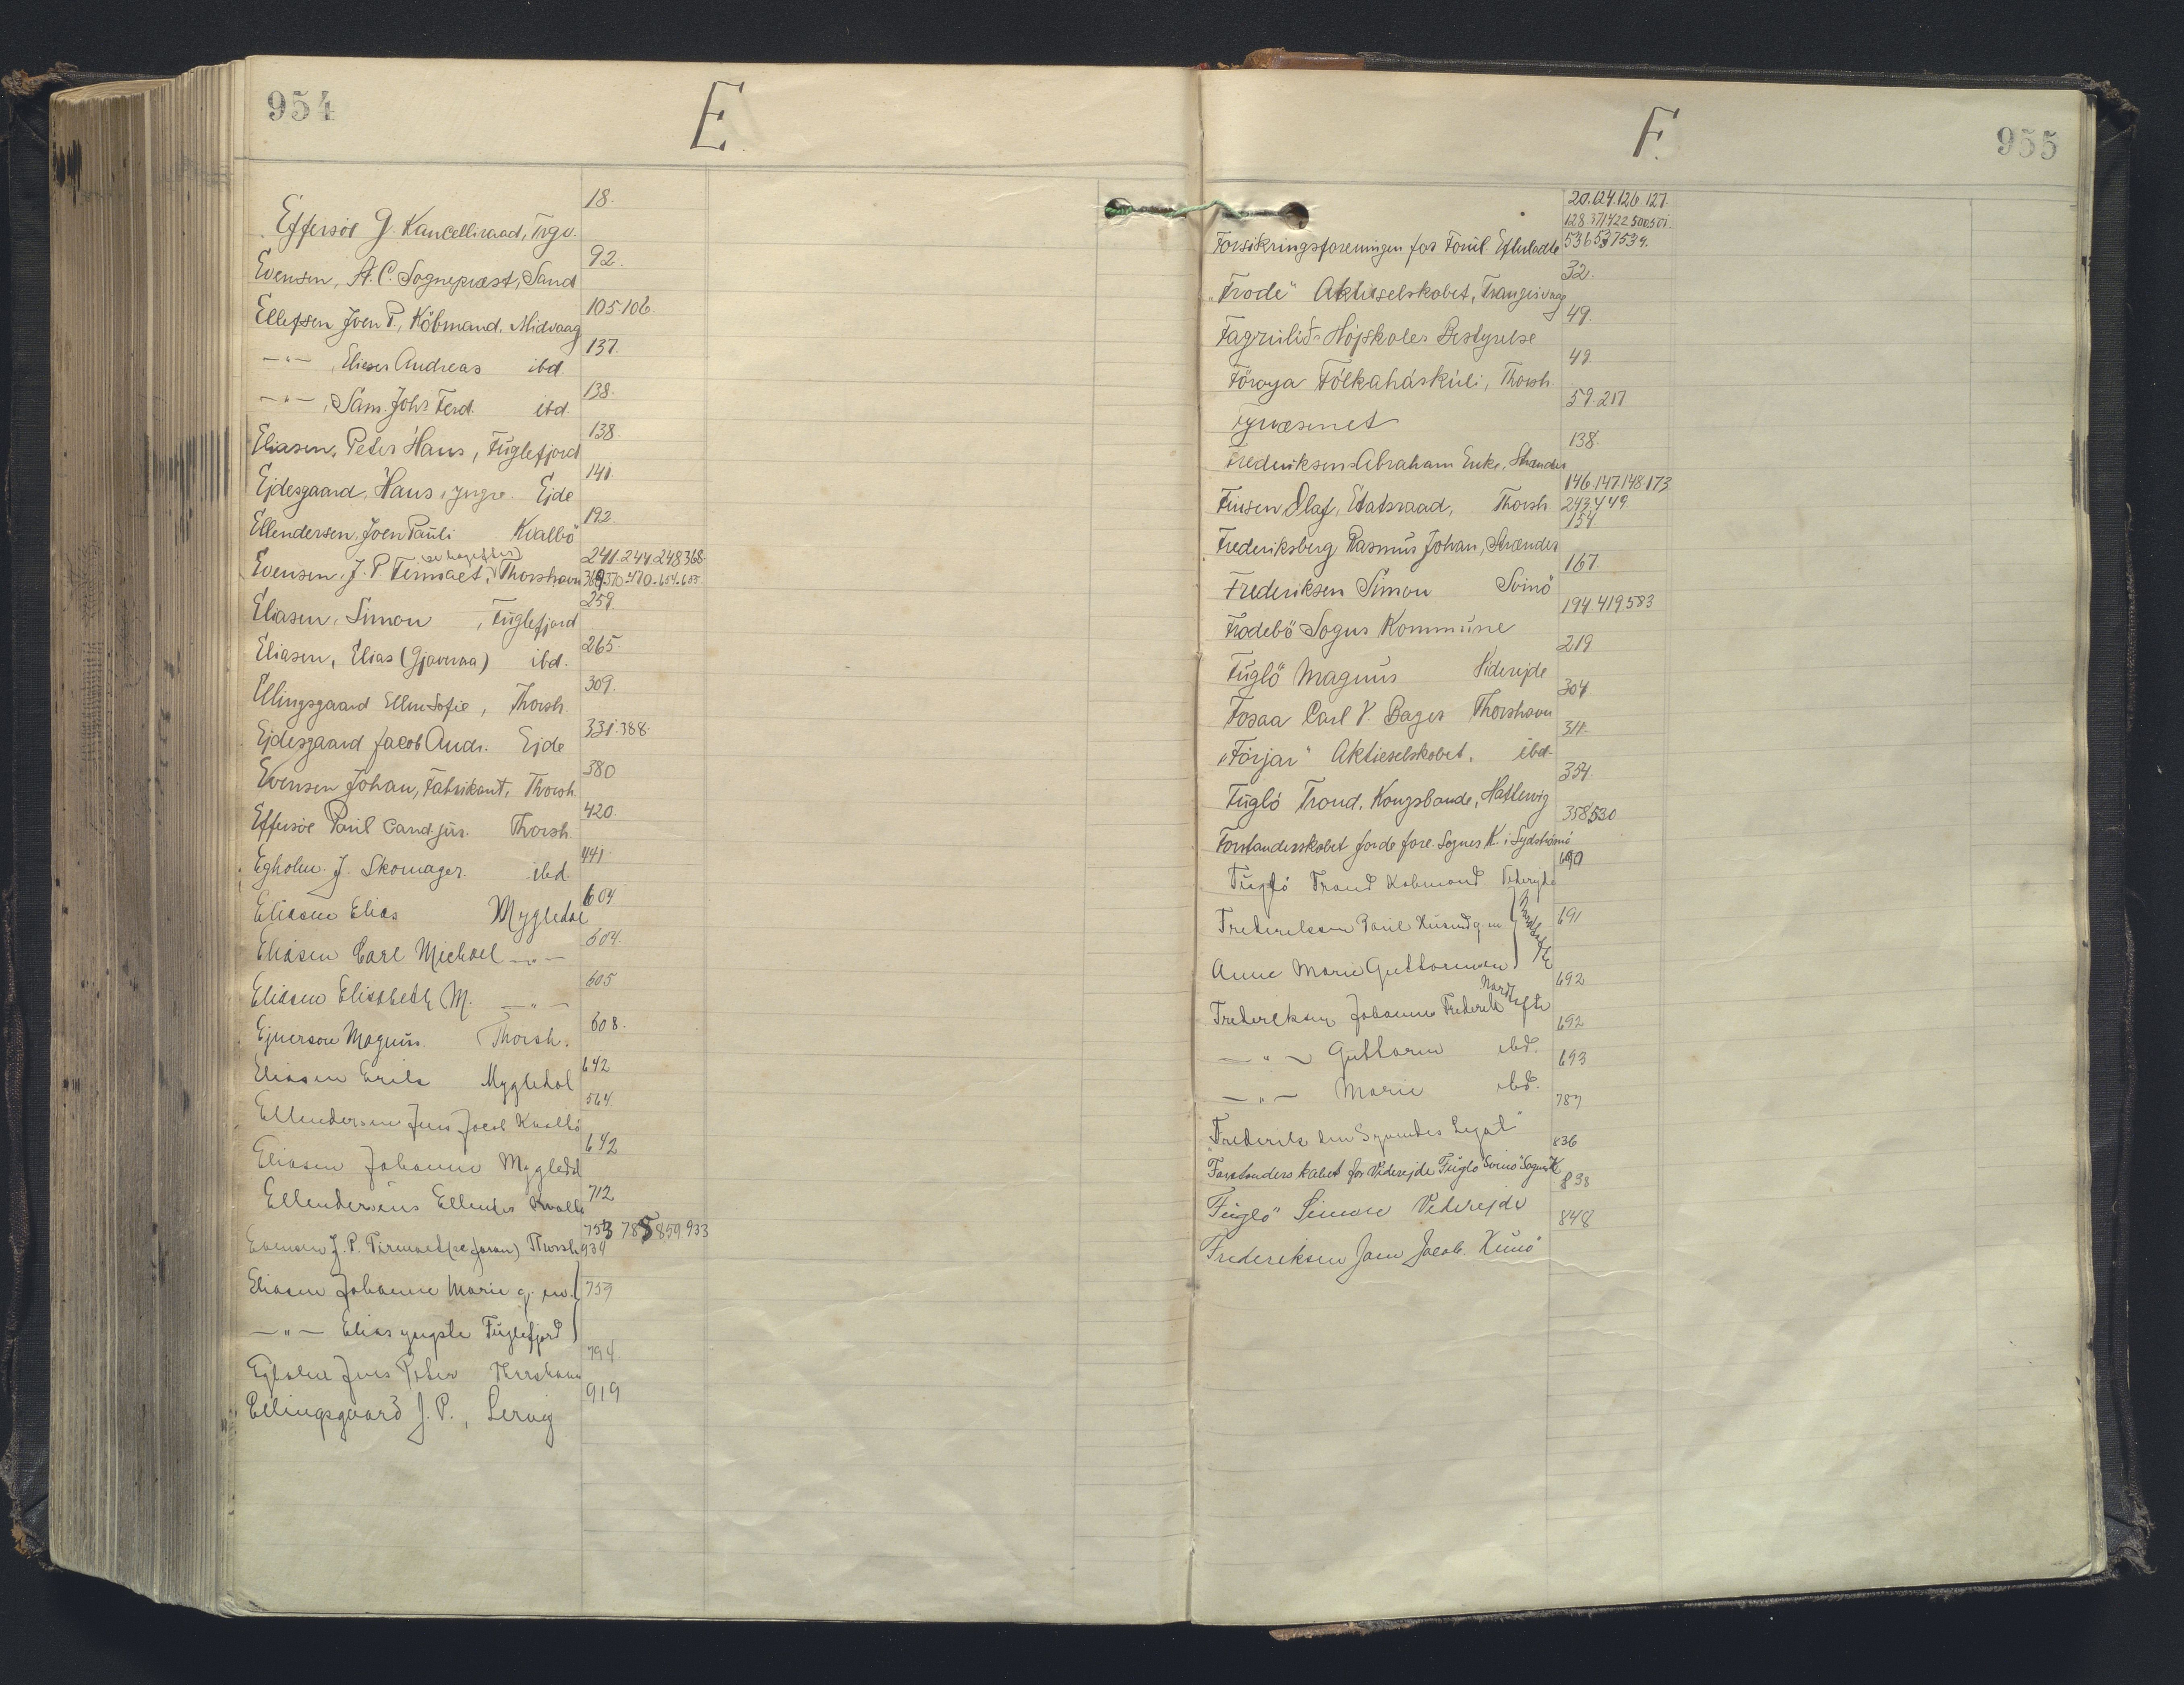 954
E.
Effersöe G. Kancelliraad, Trgv. 18.
Evensen, A. C. Sognepræst, Sand 92.
Ellefsen Joen P., Köbmand, Midvaag 105.106.
—"— , Elieser Andreas ibd. 137.
—"— , Sam. Johs Ferd. ibd. 138.
Eliasen, Peter Hans, Fuglefjord 138.
Ejdesgaard, Hans, yngre. Ejde 141.
Ellendersen, Joen Pauli Kvalbö 192.
(se bagefter)
Evensen, J. P. Firmaet, Thorshavn 241.244.248.368.
369.370.470.654.655.
Eliasen, Simon , Fuglefjord 259.
Eliasen, Elias (Gjaveraa) ibd. 265.
Ellingsgaard Ellen Sofie, Thorsh. 309.
Ejdesgaard Jacob Andr. Ejde 331.388.
Evensen Johan, Fabrikant, Thorsh. 380
Effersöe Poul Cand. jur. Thorsh. 420.
Egholm J. Skomager. ibd 441.
Eliasen Elias Mygledal 604
Eliasen Carl Michael —"— 604.
Eliasen Elisabeth M. —"— 605
Ejnersen Magnus Thorsh. 608.
Eliasen Erik Mygledal 642
Ellendersen Jens Jacob Kvalbö 564.
Eliasen Johanne Mygledal 642
Ellendersens Ellender Kvalbö 712
753 785 859.933
Evensen J. P. Firmaet (se foran) Thorsh 934
Eliasen Johanne Marie g. m. 759
—"— Elias yngste Fuglefjord
Egholm Jens Peter Thorshavn 794.
Ellingsgaard J. P., Lervig 919
F.
955
20.124.126.127.
128.371.422.500.501.
Forsikringsforeningen for Poul Efterladte 536 537 539.
"Frode" Aktieselskabet, Trangisvaag 32.
Fagrulið Højskoles Bestyrelse 49.
Föroya Fólkaháskúli, Thorsh. 49.
Fyrvæsenet 59.217
Frederiksen Abraham Enke, Strænder 138.
146.147.148.173
Finsen Olaf, Etatsraad, Thorsh 243.449.
Frederiksberg Rasmus Johan, Strænder 154.
Frederiksen Simon Svinö 167.
Frodebö Sogns Kommune 194.419.583
Fuglö Magnus Viderejde 219
Fosaa Carl V. Bager Thorshavn 304
"Förjar" Aktieselskabet. ibd. 311.
Fuglö Trond, Kongsbonde, Hattervig 354.
Forstanderskabet for de fore. Sognes K. i Sydströmö 358.530
Fuglö Trond Købmand Viderejde 690
Frederiksen Poul Husmd g m 691
Anne Marie Guttormsen
Frederiksen Johannes Frederik Norddepte 692
—"— Guttorm ibd. 692
—"— Marie ibd. 693
"Frederik den Syvendes Legat" 787
"Forstanderskabet for Viderejde Fuglö Svinö Sogns K 836
Fuglö Simon Viderejde 838
Frederiksen Joen Jacob. Kunö 848